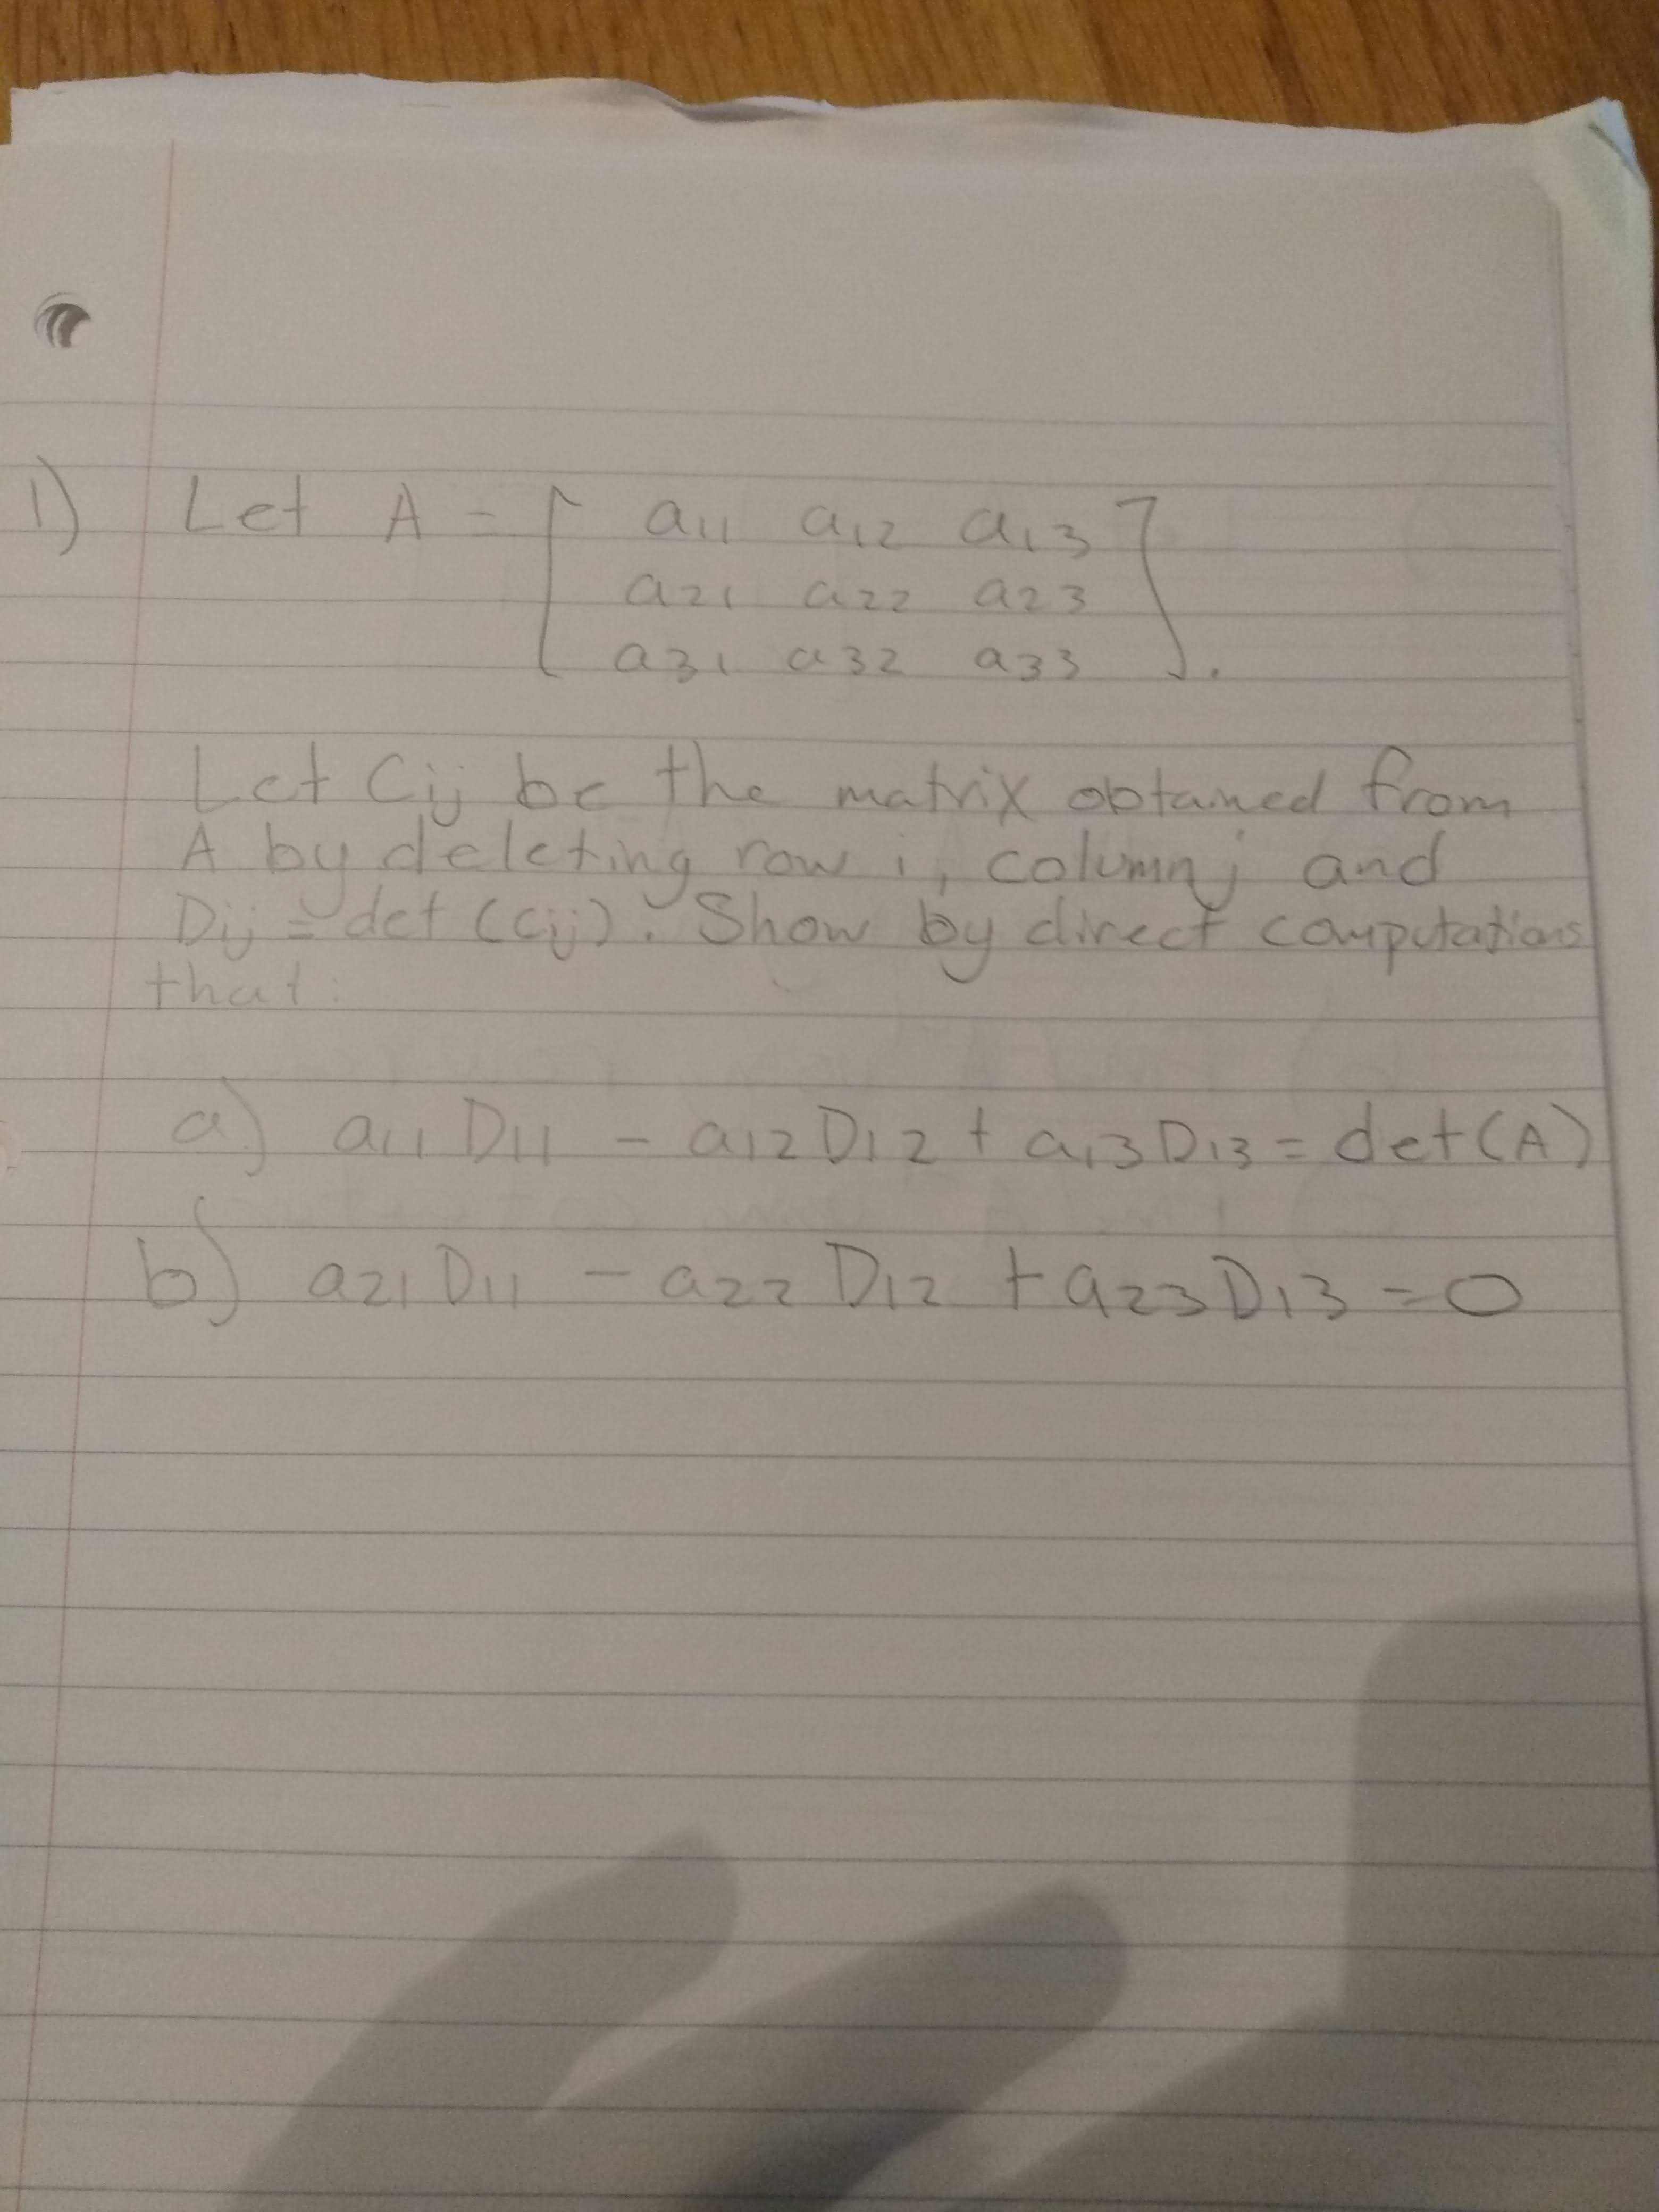 1) Let A = [ a11 a12 a13
a21 a22 a23
a31 a32 a33 ].
Let Cij be the matrix obtained from
A by deleting row i, column j and
Dij = det (Cij). Show by direct computations
that:
a) a11 D11 - a12 D12 + a13 D13 = det(A)
b) a21 D11 - a22 D12 + a23 D13 = 0